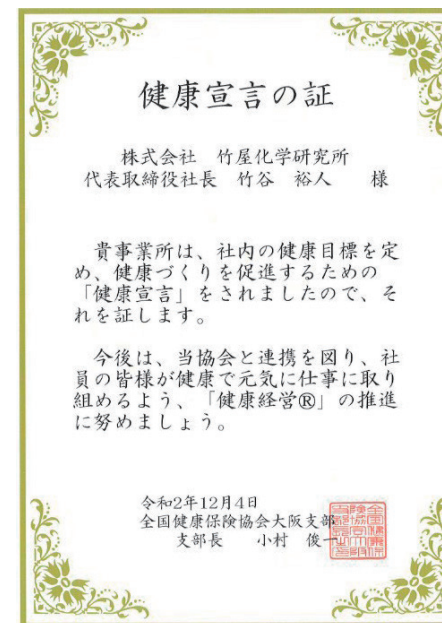 健康宣言の証
株式会社 竹屋化学研究所
代表取締役社長 竹谷 裕人 様
貴事業所は、社内の健康目標を定
め、健康づくりを促進するための
「健康宣言」をされましたので、そ
れを証します。
今後は、当協会と連携を図り、社
員の皆様が健康で元気に仕事に取り
組めるよう、「健康経営®」の推進
に努めましょう。
令和2年12月4日
全国健康保険協会大阪支部
支部長 小村 俊一